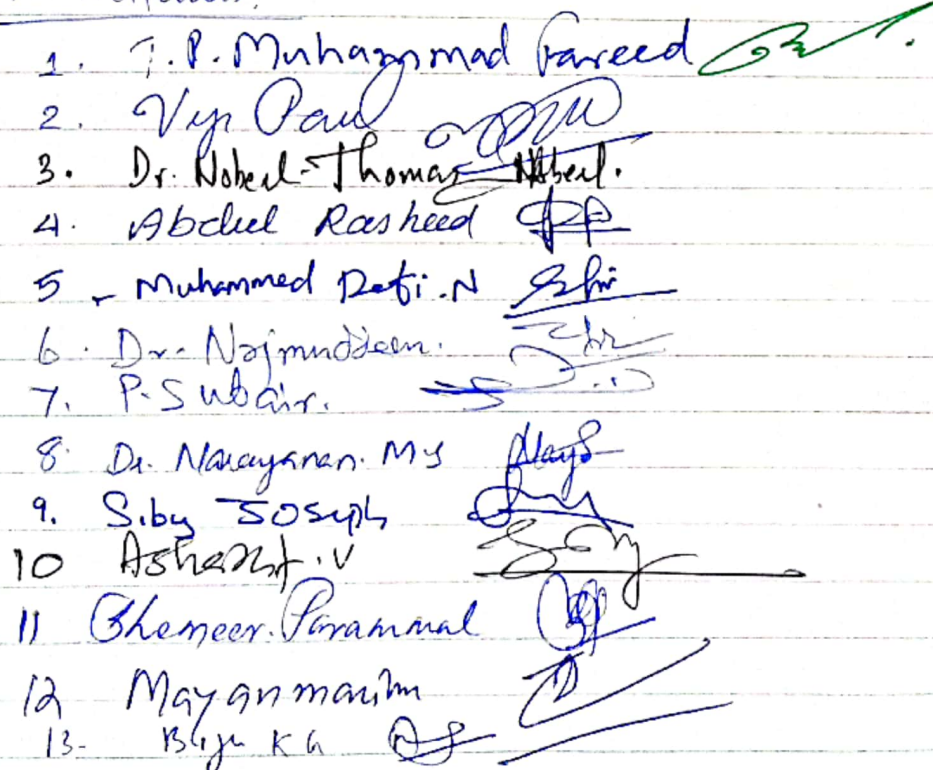 1. T.P. Muhammad Fareed
2. Viji Paul
3. Dr. Nobeel-Thomas Nobeel.
4. Abdul Rasheed
5 - Muhammed Rafi.N
6. Dr. Najmuddeen.
7. P. Subair.
8. Dr. Narayanan. M S
9. Siby Joseph
10 Ashraf.V
11 Shemeer. Parammal
12 Mayan
13- Biju K G